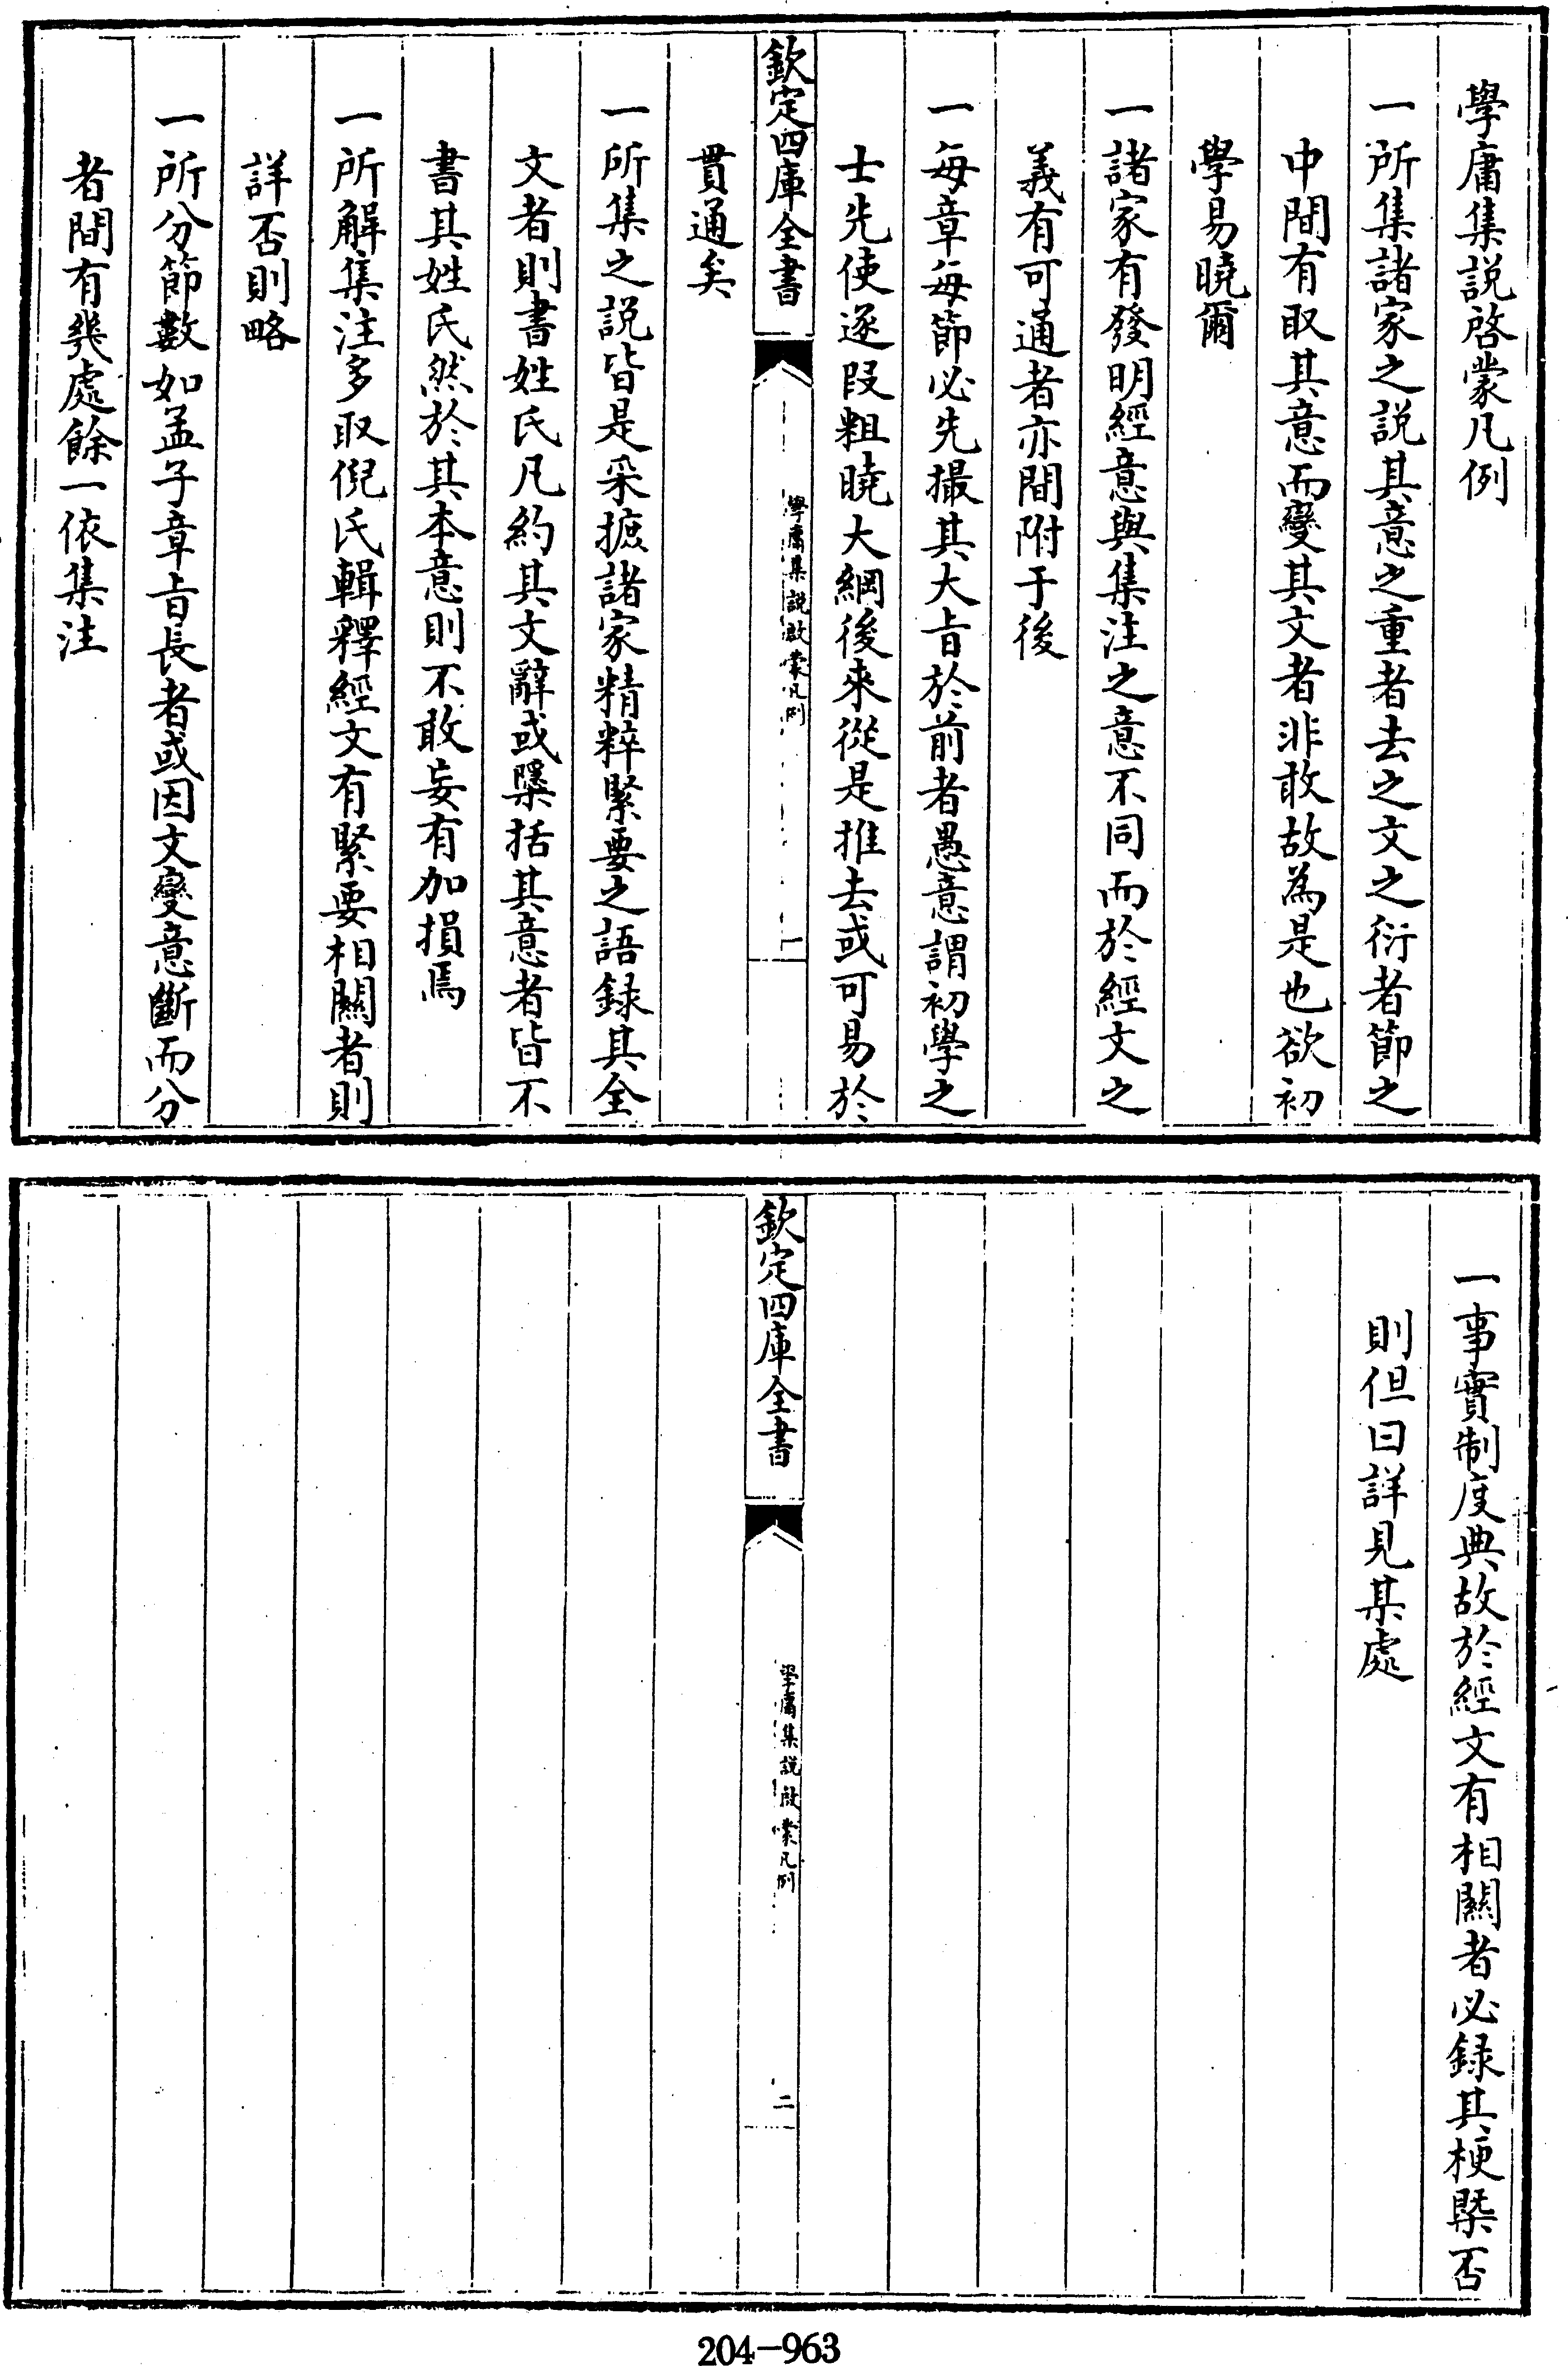 學庸集説啓蒙凡例
一所集諸家之説其意之重者去之文之衍者節之
中間有取其意而變其文者非敢故為是也欲初
學易曉爾
一諸家有發明經意與集注之意不同而於經文之
義有可通者亦間附于後
一每章每節必先撮其大旨於前者愚意謂初學之
士先使逐段粗曉大綱後來從是推去或可易於
欽定四庫全書
學庸集説啟蒙凡例
一
貫通矣
一所集之説皆是采摭諸家精粹緊要之語録其全
文者則書姓氏凡約其文辭或檃括其意者皆不
書其姓氏然於其本意則不敢妄有加損焉
一所解集注多取倪氏輯釋經文有緊要相關者則
詳否則略
一所分節數如孟子章旨長者或因文變意斷而分
者間有幾處餘一依集注
一事實制度典故於經文有相關者必録其梗槩否
則但曰詳見某處
欽定四庫全書
學庸集説啟蒙凡例
二
204-963